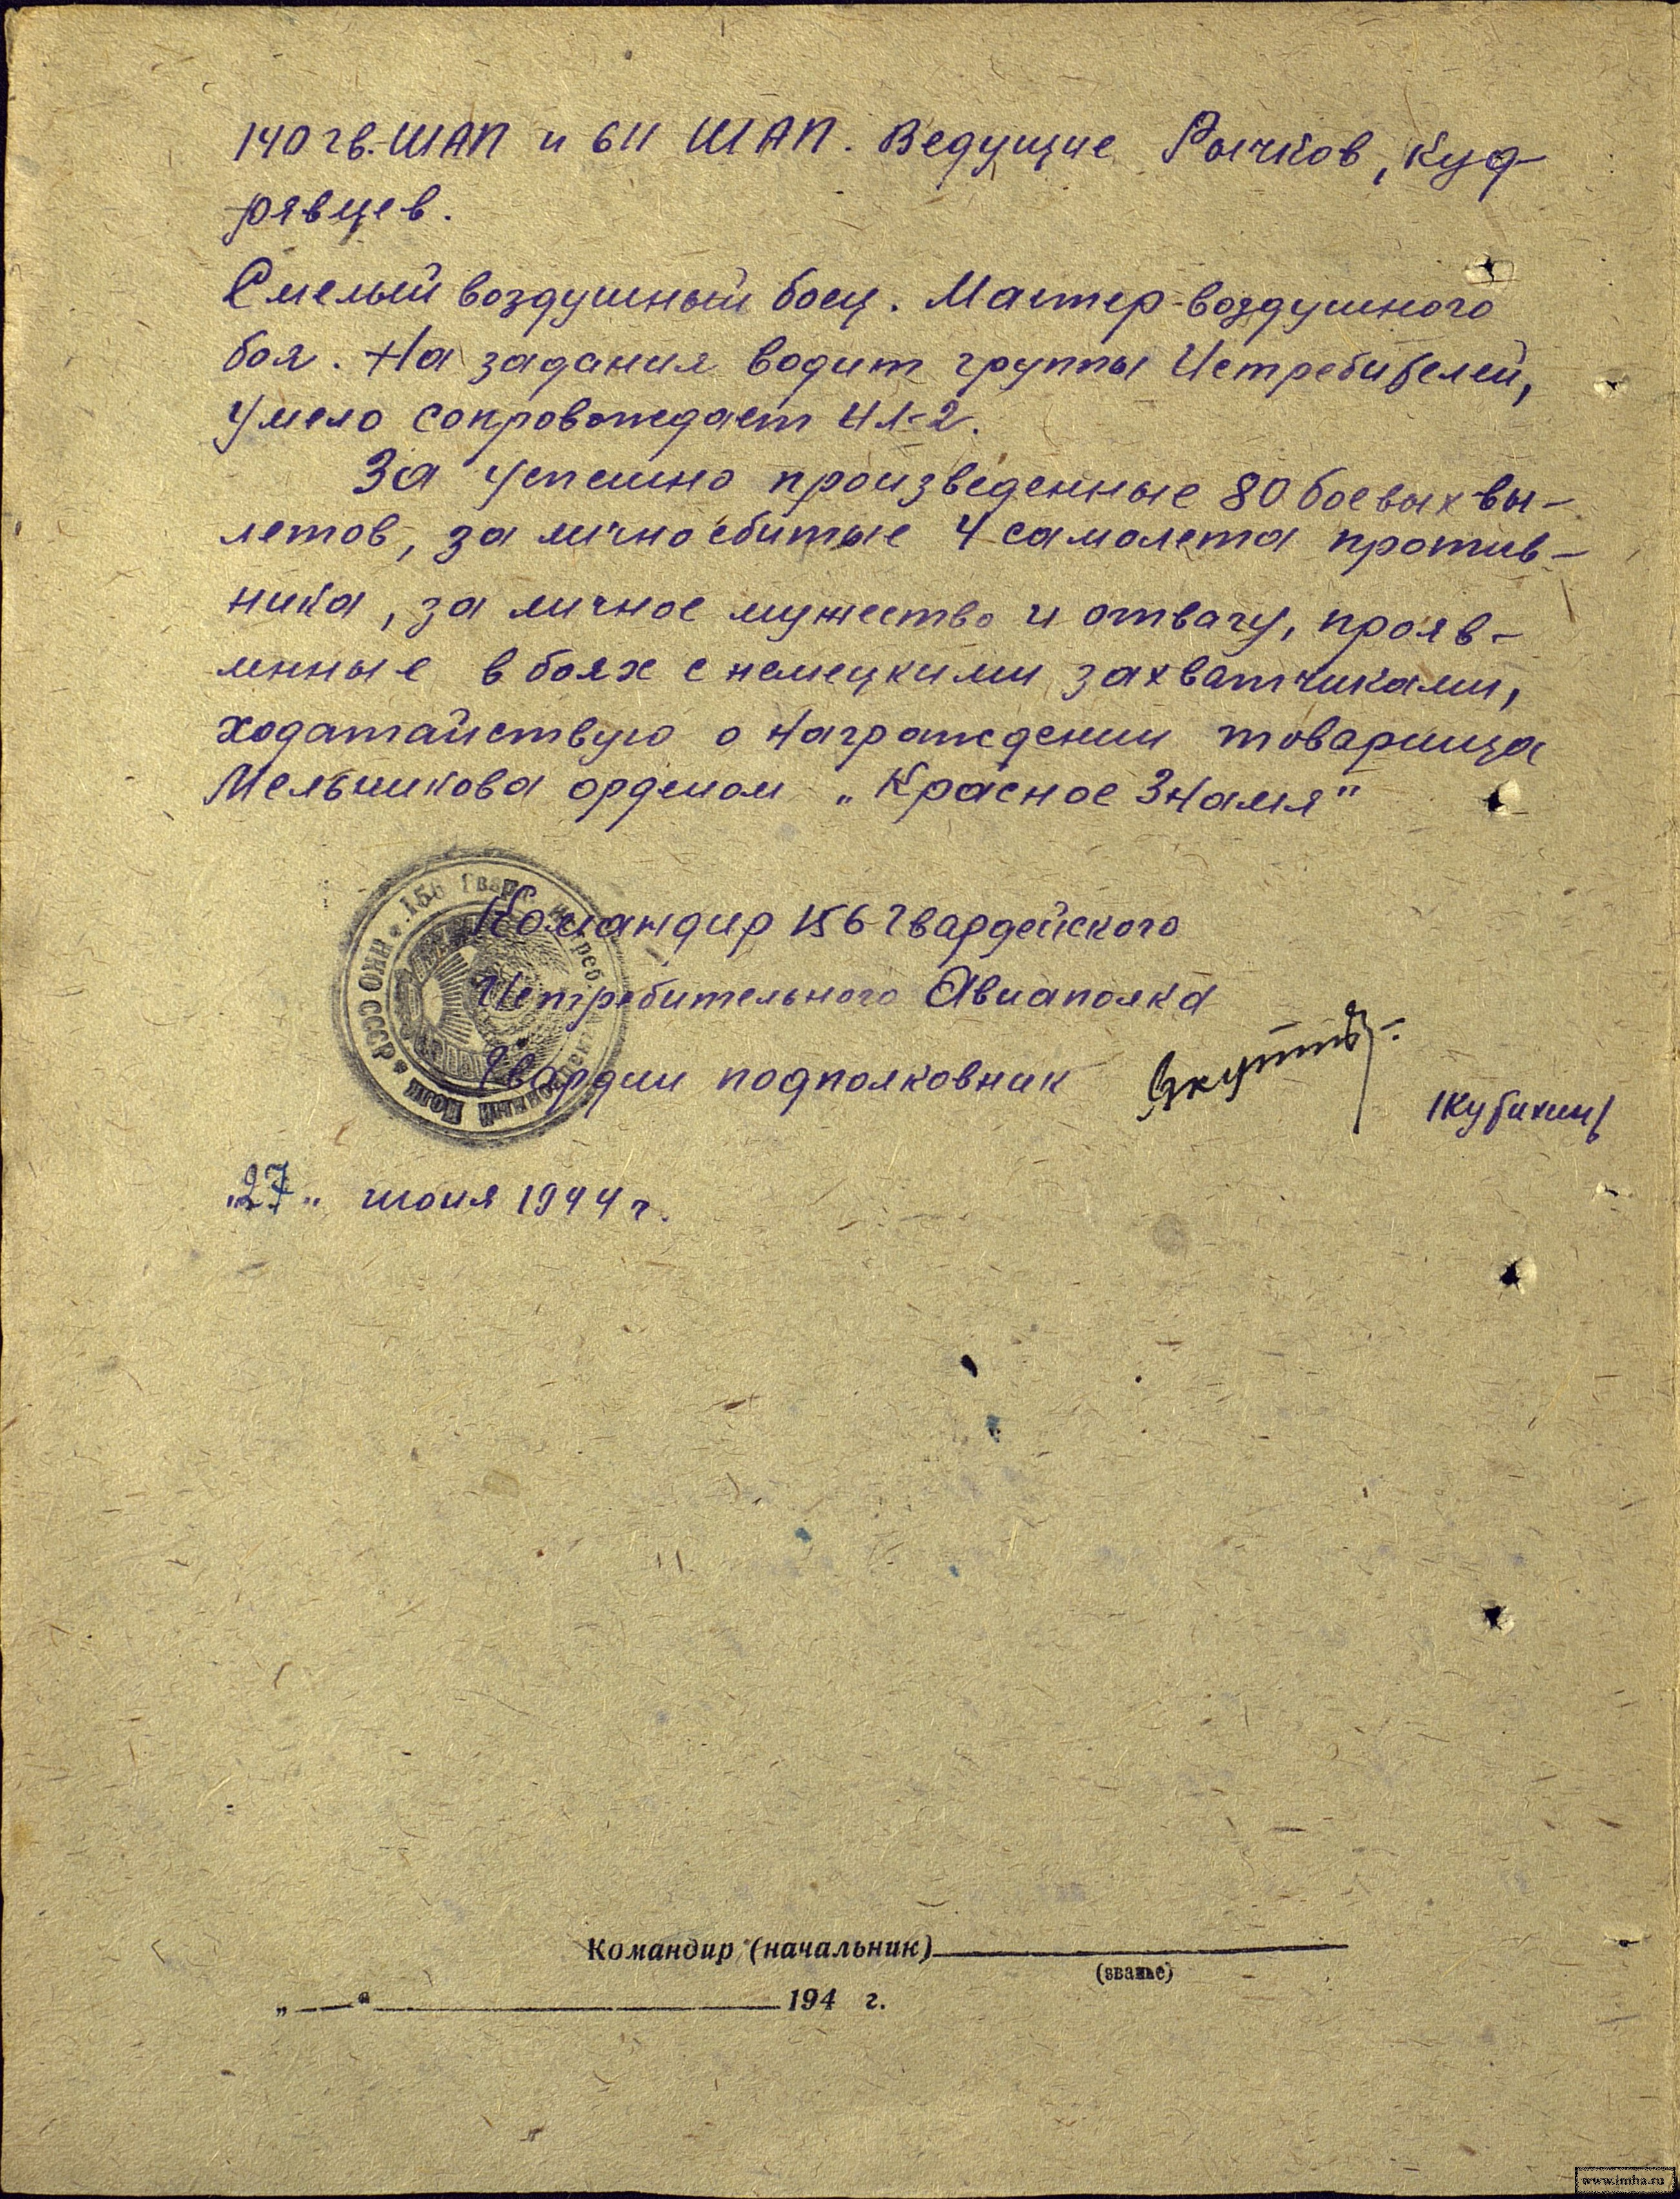 140 гв. ШАП и 611 ШАП. Ведущие Рычков, Куд-
рявцев.
Смелый воздушный боец. Мастер воздушного
боя. На задания водит группы Истребителей,
Умело сопровождает Ил-2.
За Успешно произведенные 80 боевых вы-
летов, за лично сбитые 4 самолета против-
ника, за личное мужество и отвагу, прояв-
ленные в боях с немецкими захватчиками,
ходатайствую о награждении товарища
Мельникова орденом „Красное Знамя"
Командир 156 Гвардейского
Истребительного Авиаполка
Гвардии подполковник
/Кутихин/
"27" июня 1944 г.
156 Гвард. Истреб. Авиационный Полк * НКО СССР *
Командир (начальник)
(званье)
„ “ 194 г.
www.imha.ru